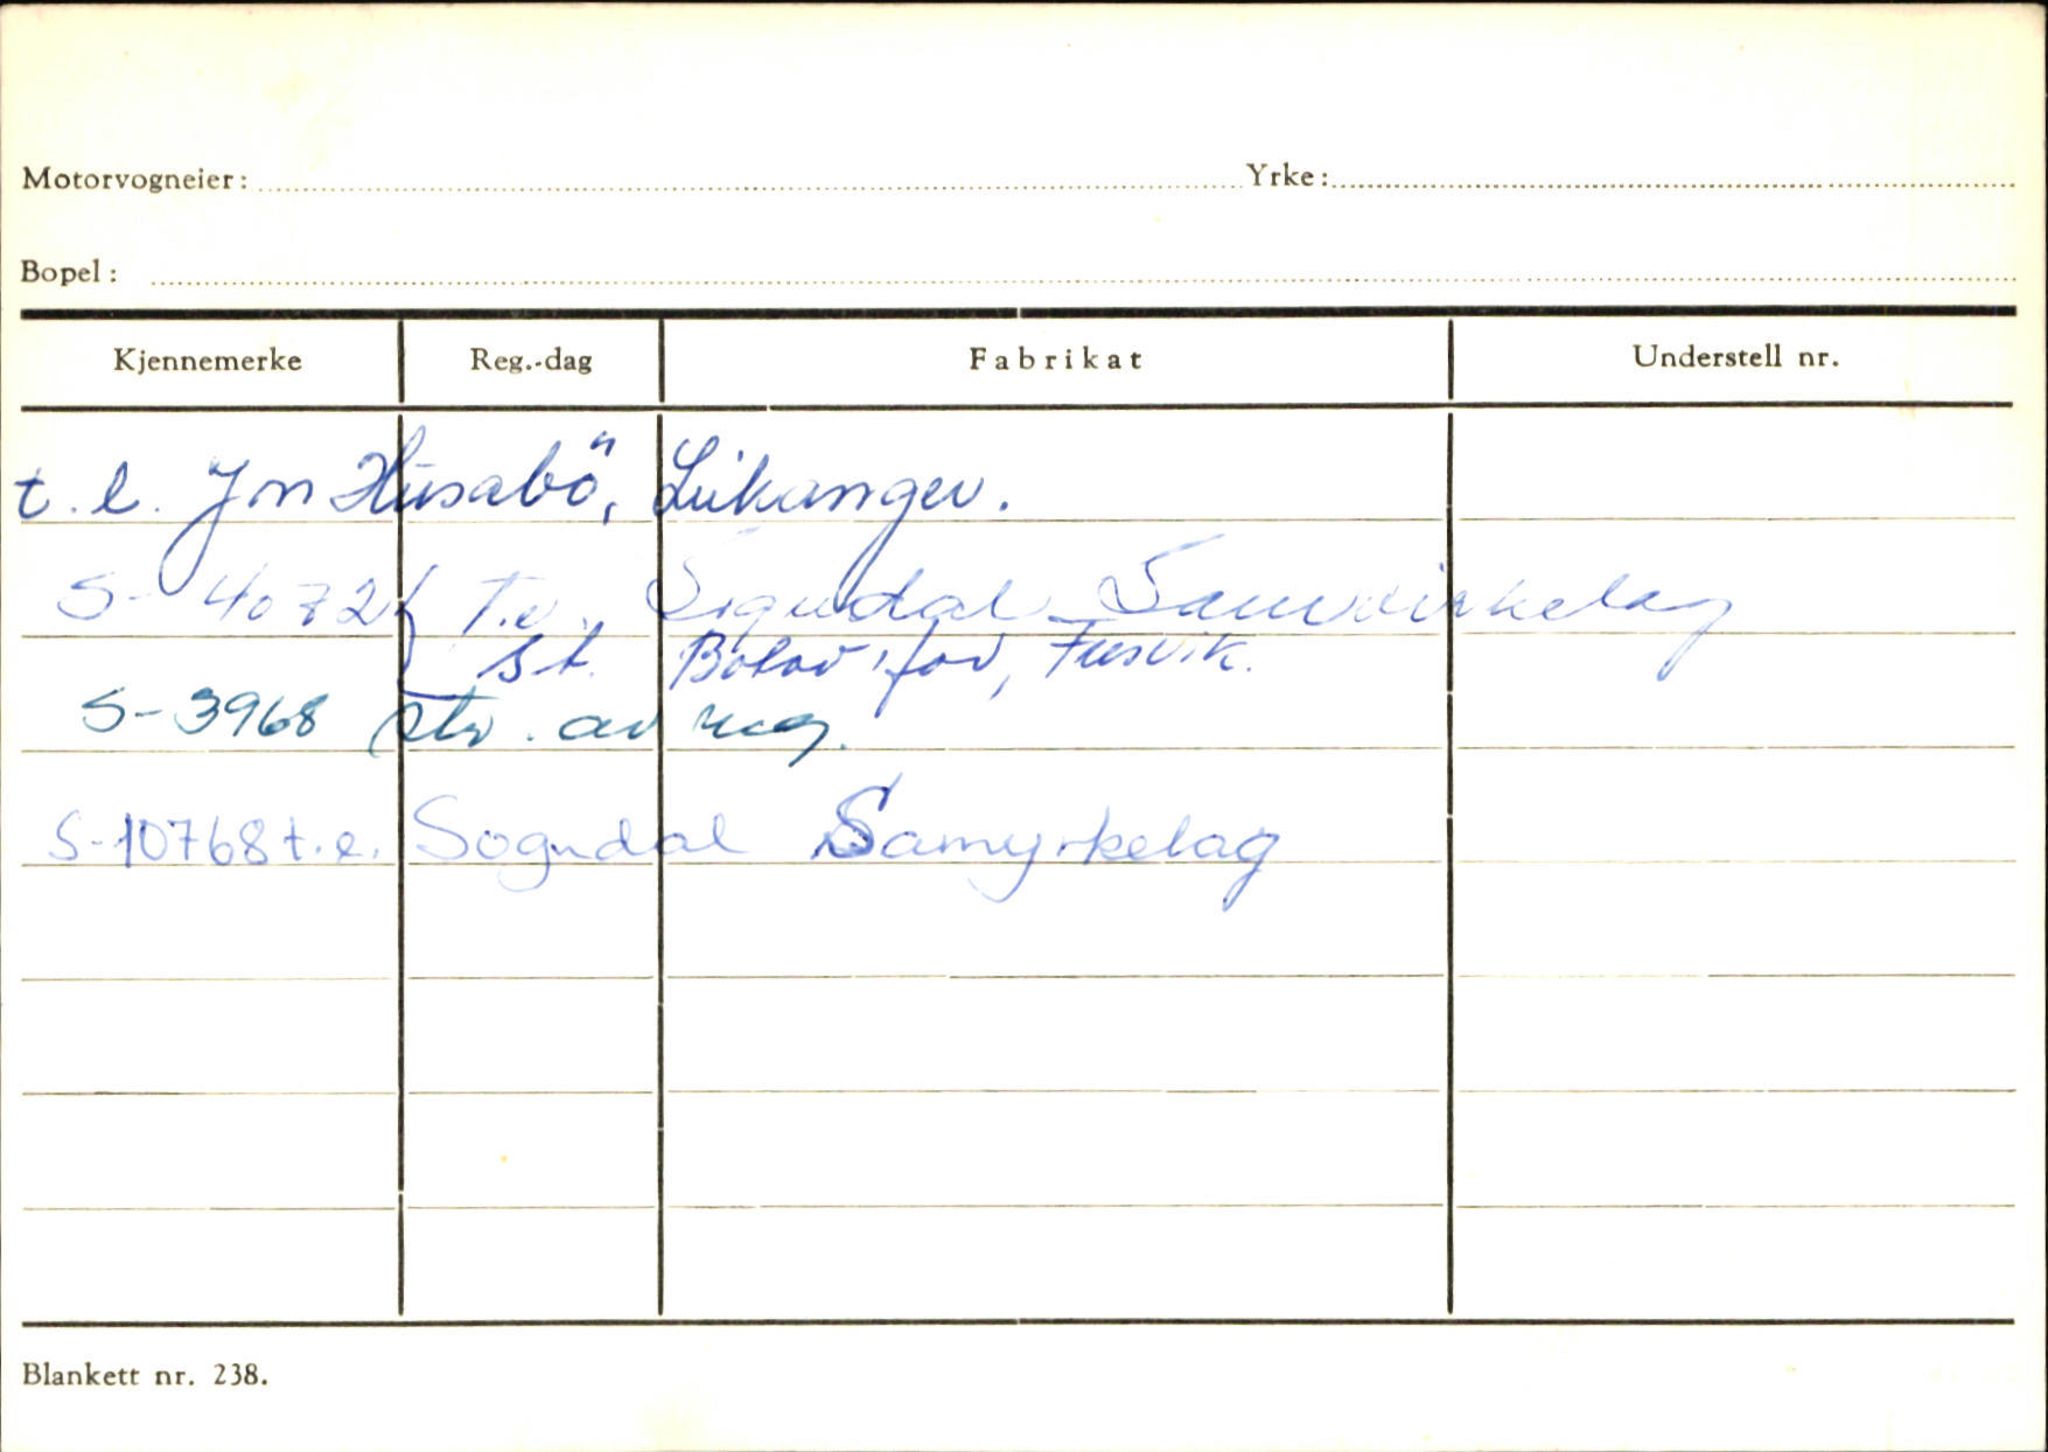 Motorvogneier: Yrke:
Bopel:
Kjennemerke Reg.-dag Fabrikat Understell nr.
t. e. Jon Husabö, Leikanger.
S- 4072 T.e. Sogndal Samvirkelag
st.
S-3968 str. av reg.
S-10768 t.e. Sogndal Samyrkelag
Blankett nr. 238.